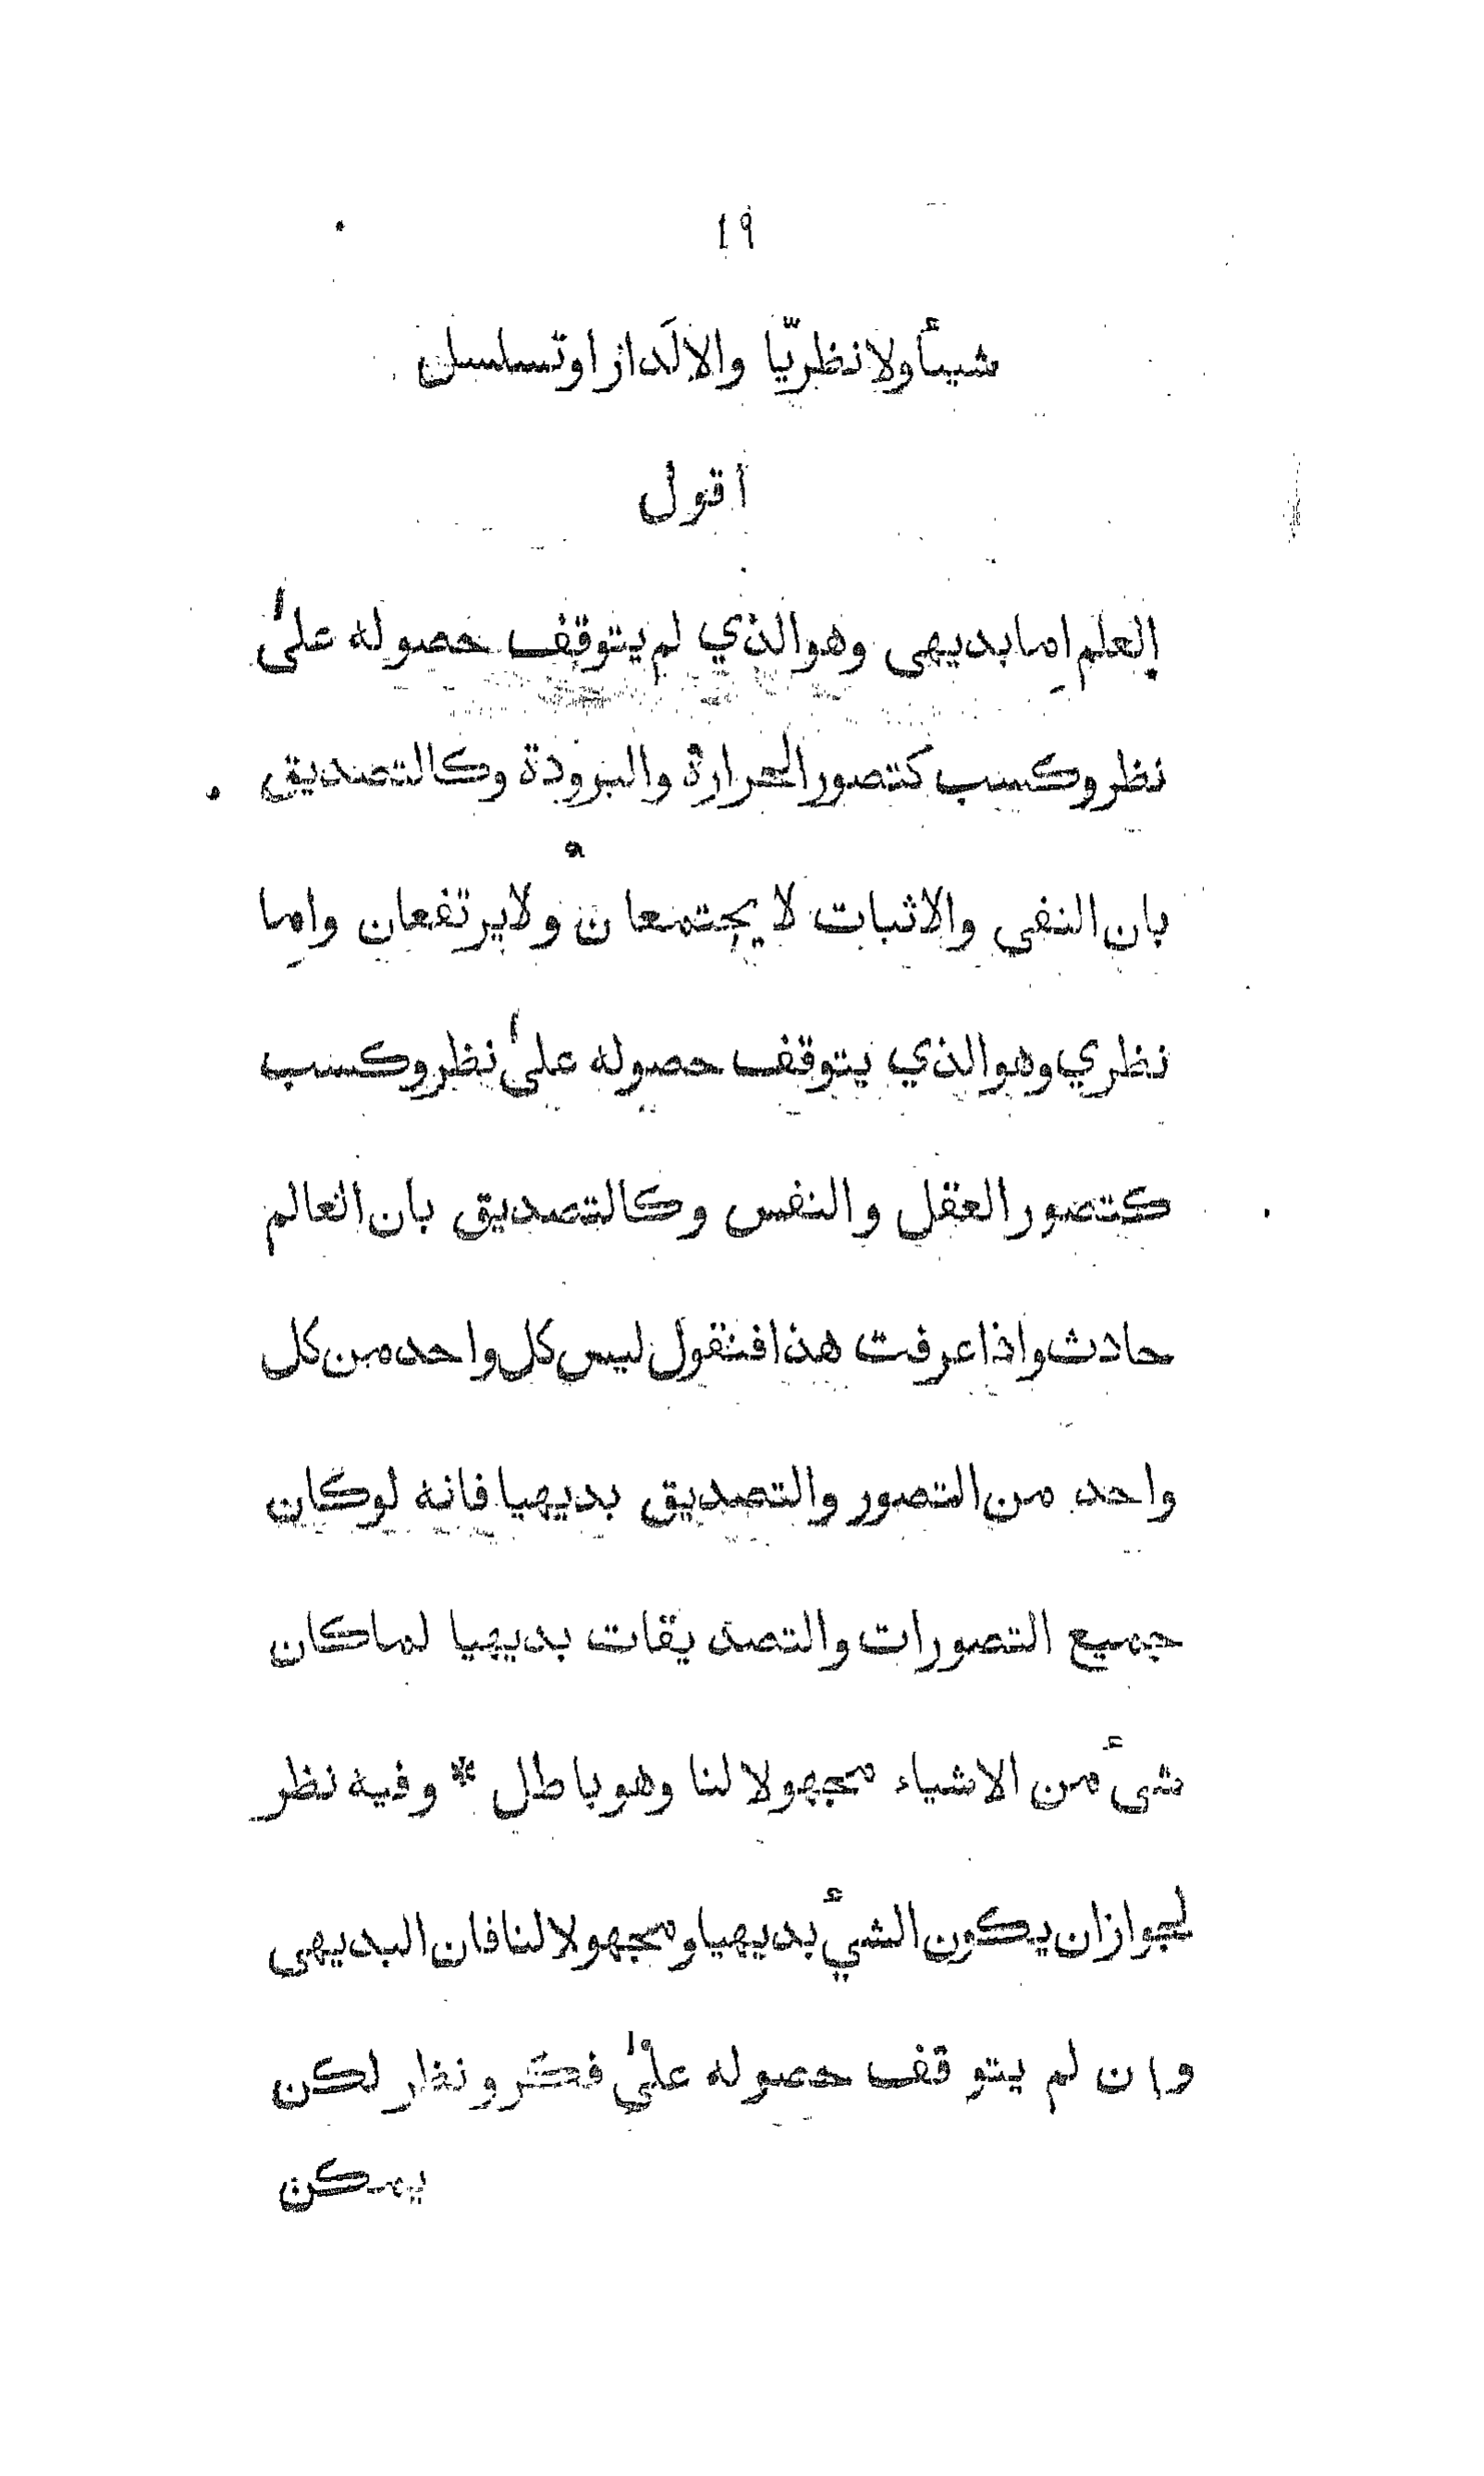 ١٩
شيئأ ولا نظريّا والا لَدار او تسلسل
أقول
العلم اِما بديهى وهو الذي لم يتوقف حصوله علىٰ
نظر وكسب كتصور الحرارة والبرودة وكالتصديق
بان النفى والاثبات لا يجتمعان ولا يرتفعان واِما
نظري وهو الذي يتوقف حصوله علىٰ نظر وكسب
كتصور العقل والنفس وكالتصديق بان العالم
حادث واذا عرفت هذا فنقول ليس كل واحد من كل
واحد من التصور والتصديق بديهيا فانه لوكان
جميع التصورات والتصديقات بديهيا لماكان
شىٔ من الاشياء مجهولا لنا وهو باطل * وفيه نظر
لجواز ان يكون الشئ بديهيا ومجهولا لنا فان البديهى
وان لم يتوقف حصوله علىٰ فكر ونظر لكن
يمكن